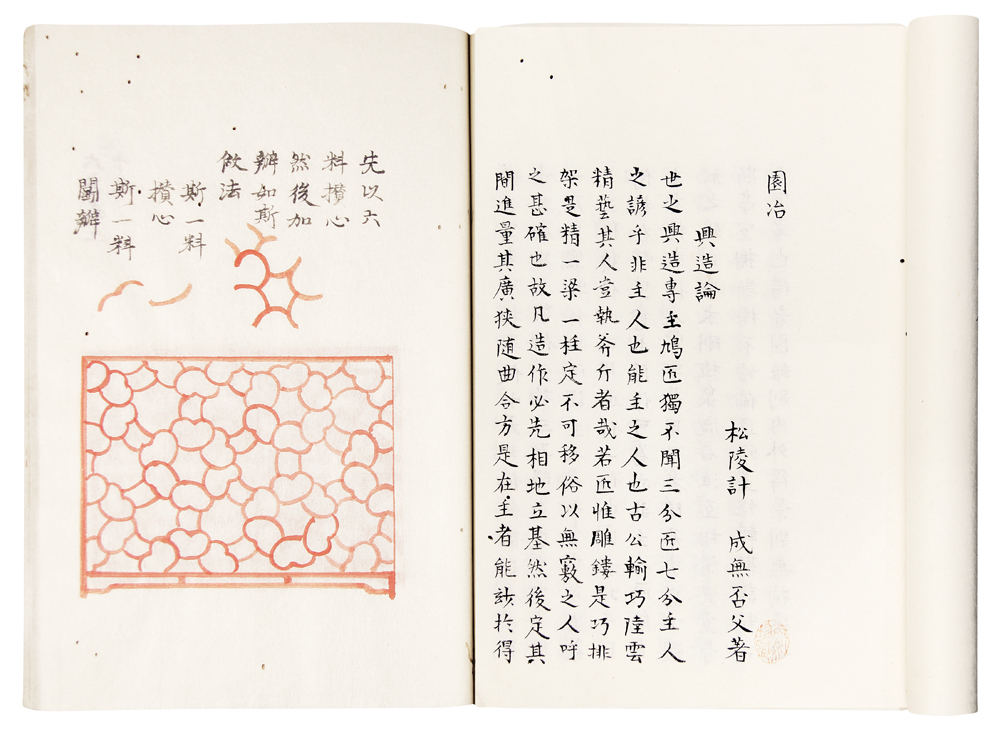 園冶
松陵計 成無否父著
興造論
世之興造專主鳩匠獨不聞三分匠七分主人
之諺乎非主人也能主之人也古公輸巧陸雲
精藝其人豈執斧斤者哉若匠惟雕鏤是巧排
架是精一梁一柱定不可移俗以無竅之人呼
之甚確也故凡造作必先相地立基然後定其
間進量其廣狹随曲合方是在主者能玅於得
先以六
料攢心
然後加
瓣如斯
做法
斯一料
攢心
斯一料
鬭瓣